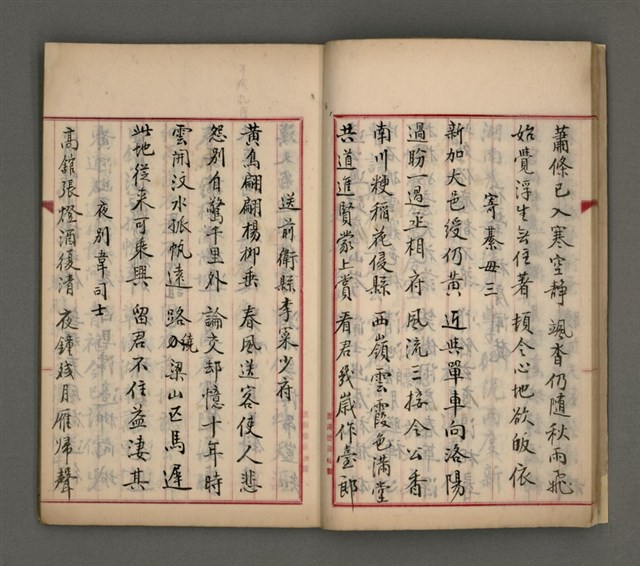 蕭條已入寒空靜 颯沓仍隨秋雨飛
始覺浮生無住著 頓令心地欲皈依
寄綦毋三
新加大邑綬仍黃 近與單車向洛陽
過盼一過丞相府 風流三接令公香
南川粳稻花侵縣 西嶺雲霞色滿堂
共道進賢蒙上賞 看君幾歲作臺郎
送前衛縣李寀少府
黃鳥翩翩楊柳垂 春風送客使人悲
怨別自驚千里外 論交却憶十年時
雲開汶水孤帆遠 路繞梁山匹馬遲
此地從來可乘興 留君不住益淒其
夜別韋司士
高館張燈酒復清 夜鐘殘月雁歸聲